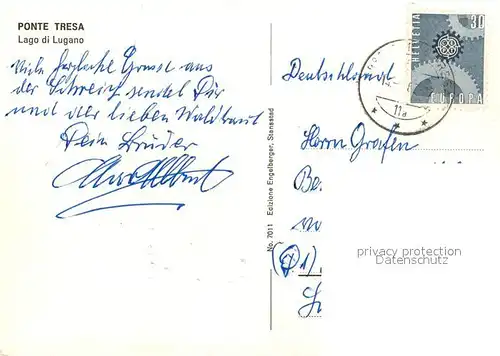 PONTE TRESA
Lago di Lugano
Viele herzliche Grüsse aus
der Schweiz sendet Dir
und der lieben Waldtraut
Dein Bruder
No. 7011 Edizione Engelberger, Stansstad
HELVETIA
30
EUROPA
11a
Deutschland
Herrn Grafen
Be
privacy protection
Datenschutz